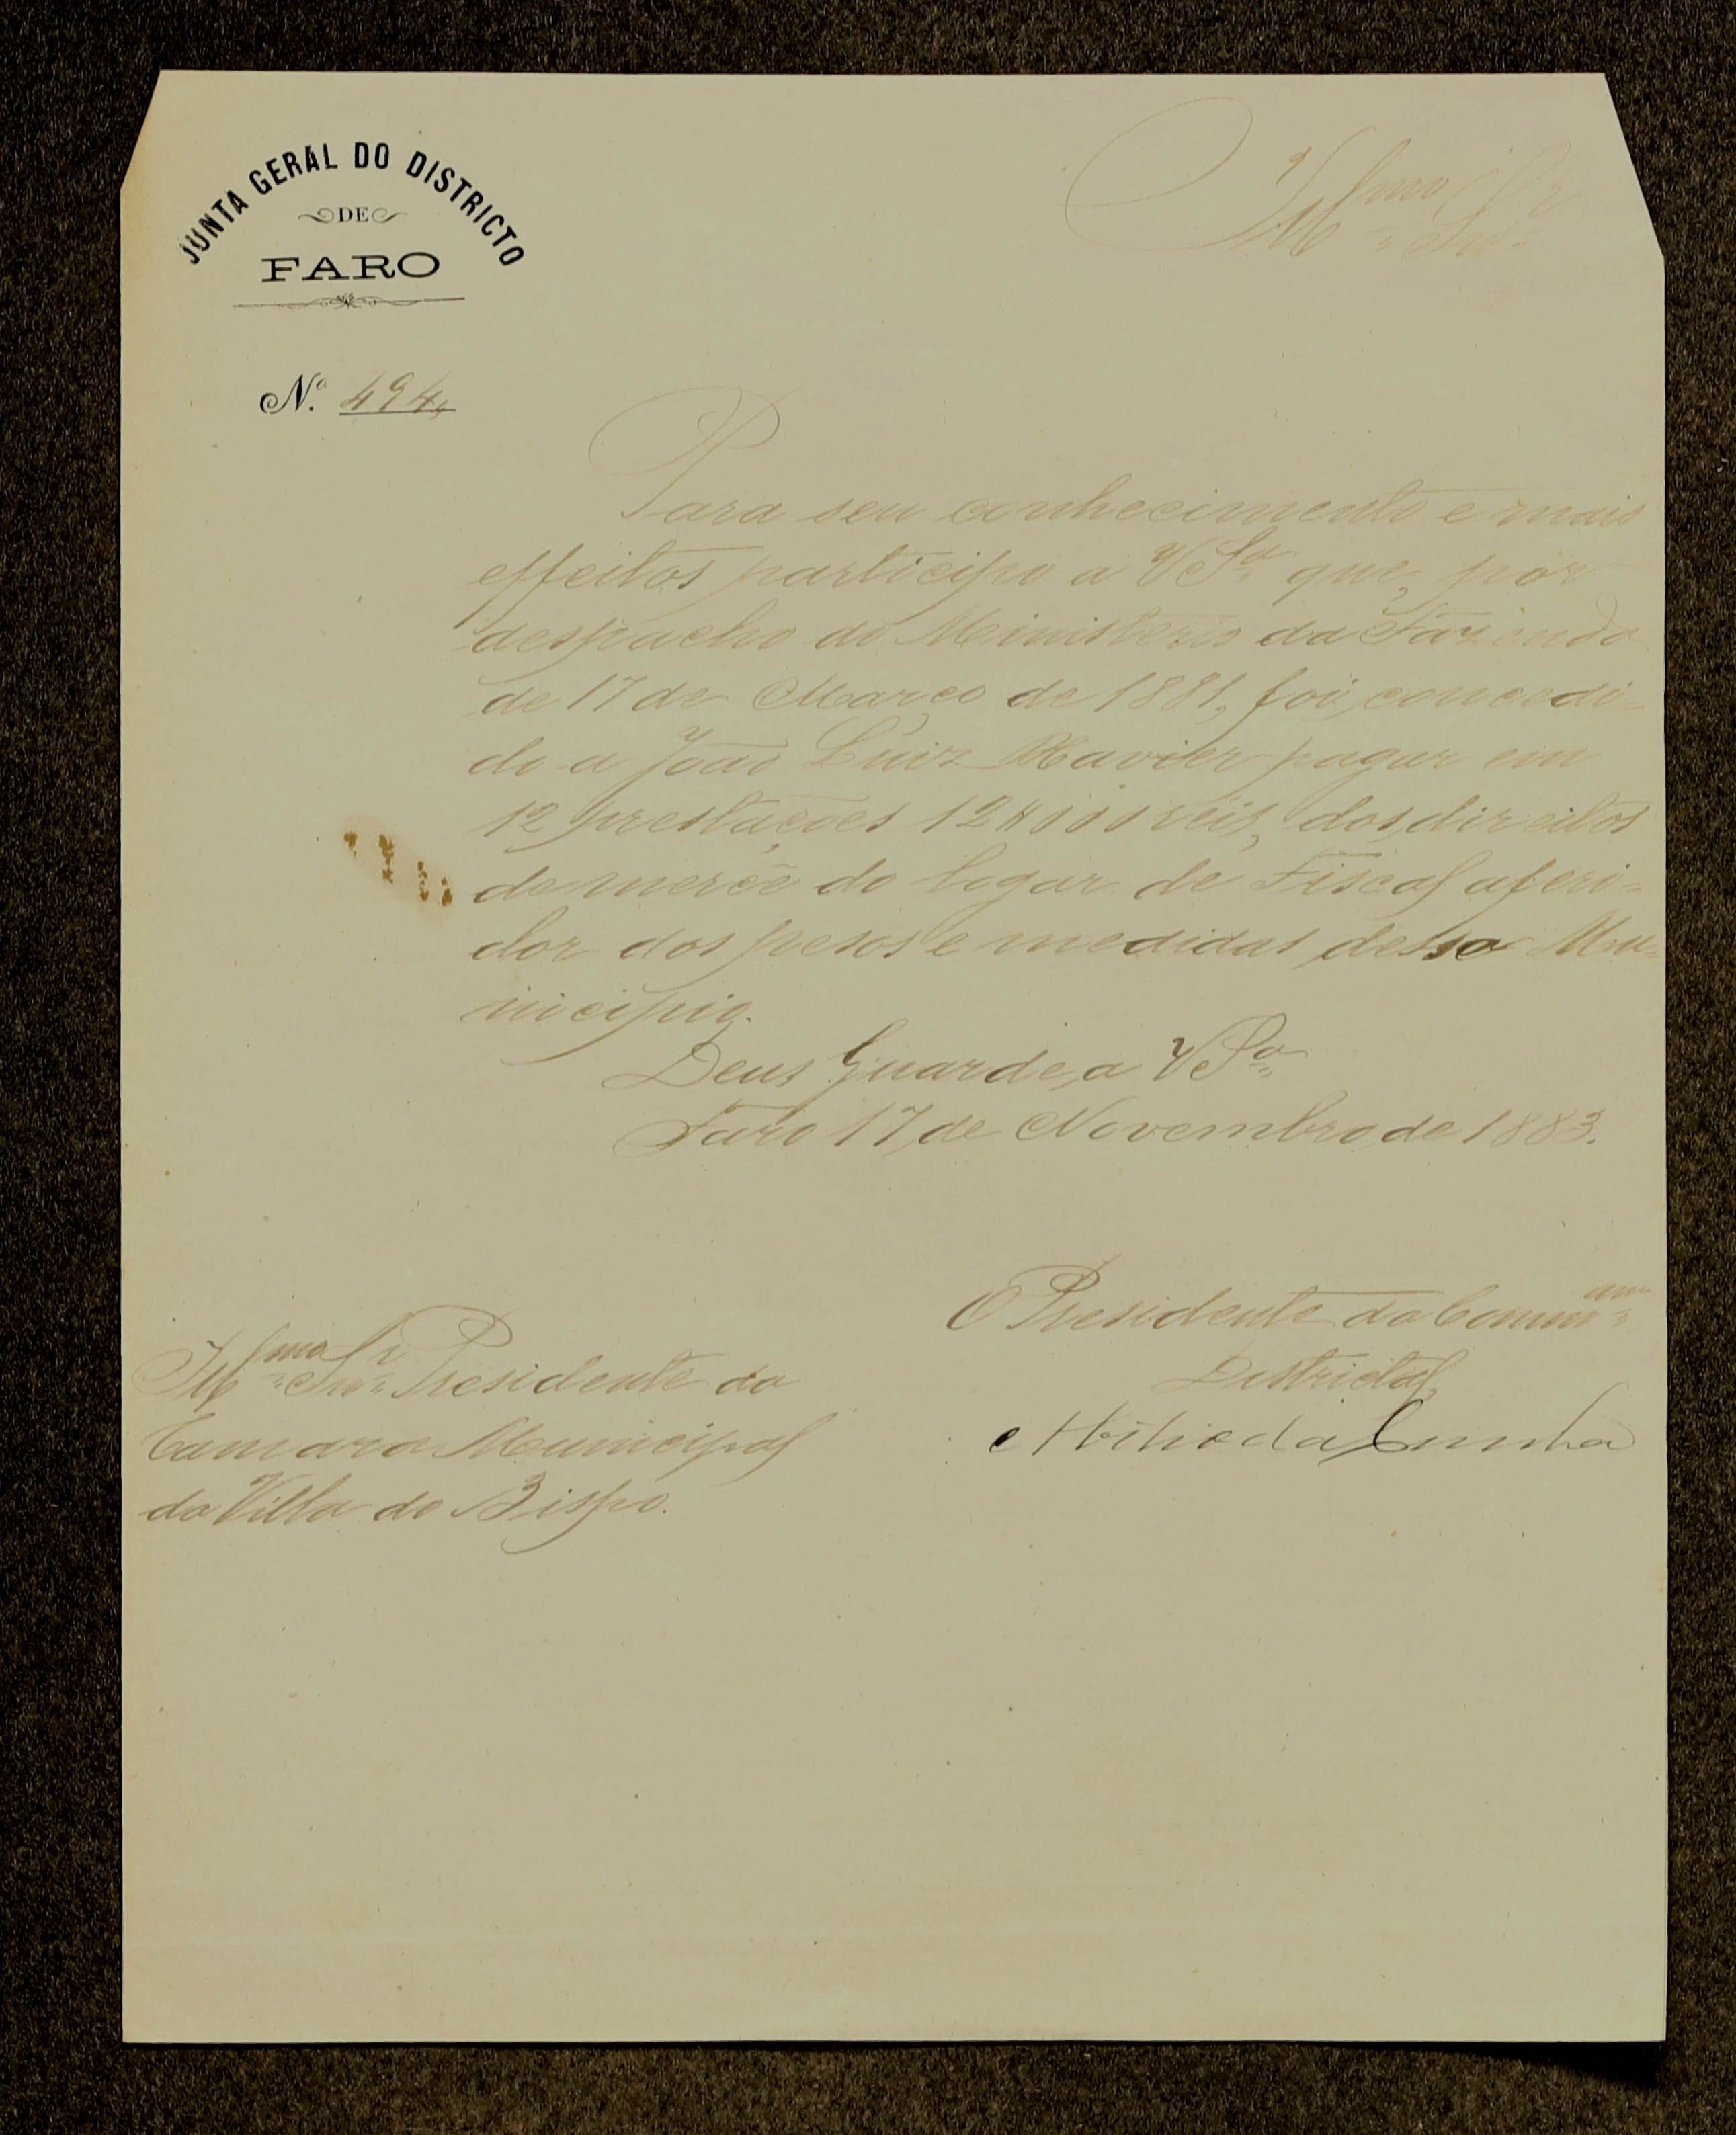 JUNTA GERAL DO DISTRICTO
DE
FARO
Illmo Snr
N.º 494
Para seu conhecimento e mais
effeitos participo a V Sa que, por
despacho do Ministerio da Fazenda
de 17 de Março de 1881, foi concedi-
do a João Luiz Xavier pagar em
12 prestações 12$000 reis, dos direitos
de mercê do logar de Fiscal aferi-
dor dos pesos e medidas desse Mu-
nicipio.
Deus Guarde a V Sa
Faro 17 de Novembro de 1883.
O Presidente da Commam
Districtal,
da Cunha
Illmo Snr Presidente da
Camara Municipal
da Villa do Bispo.